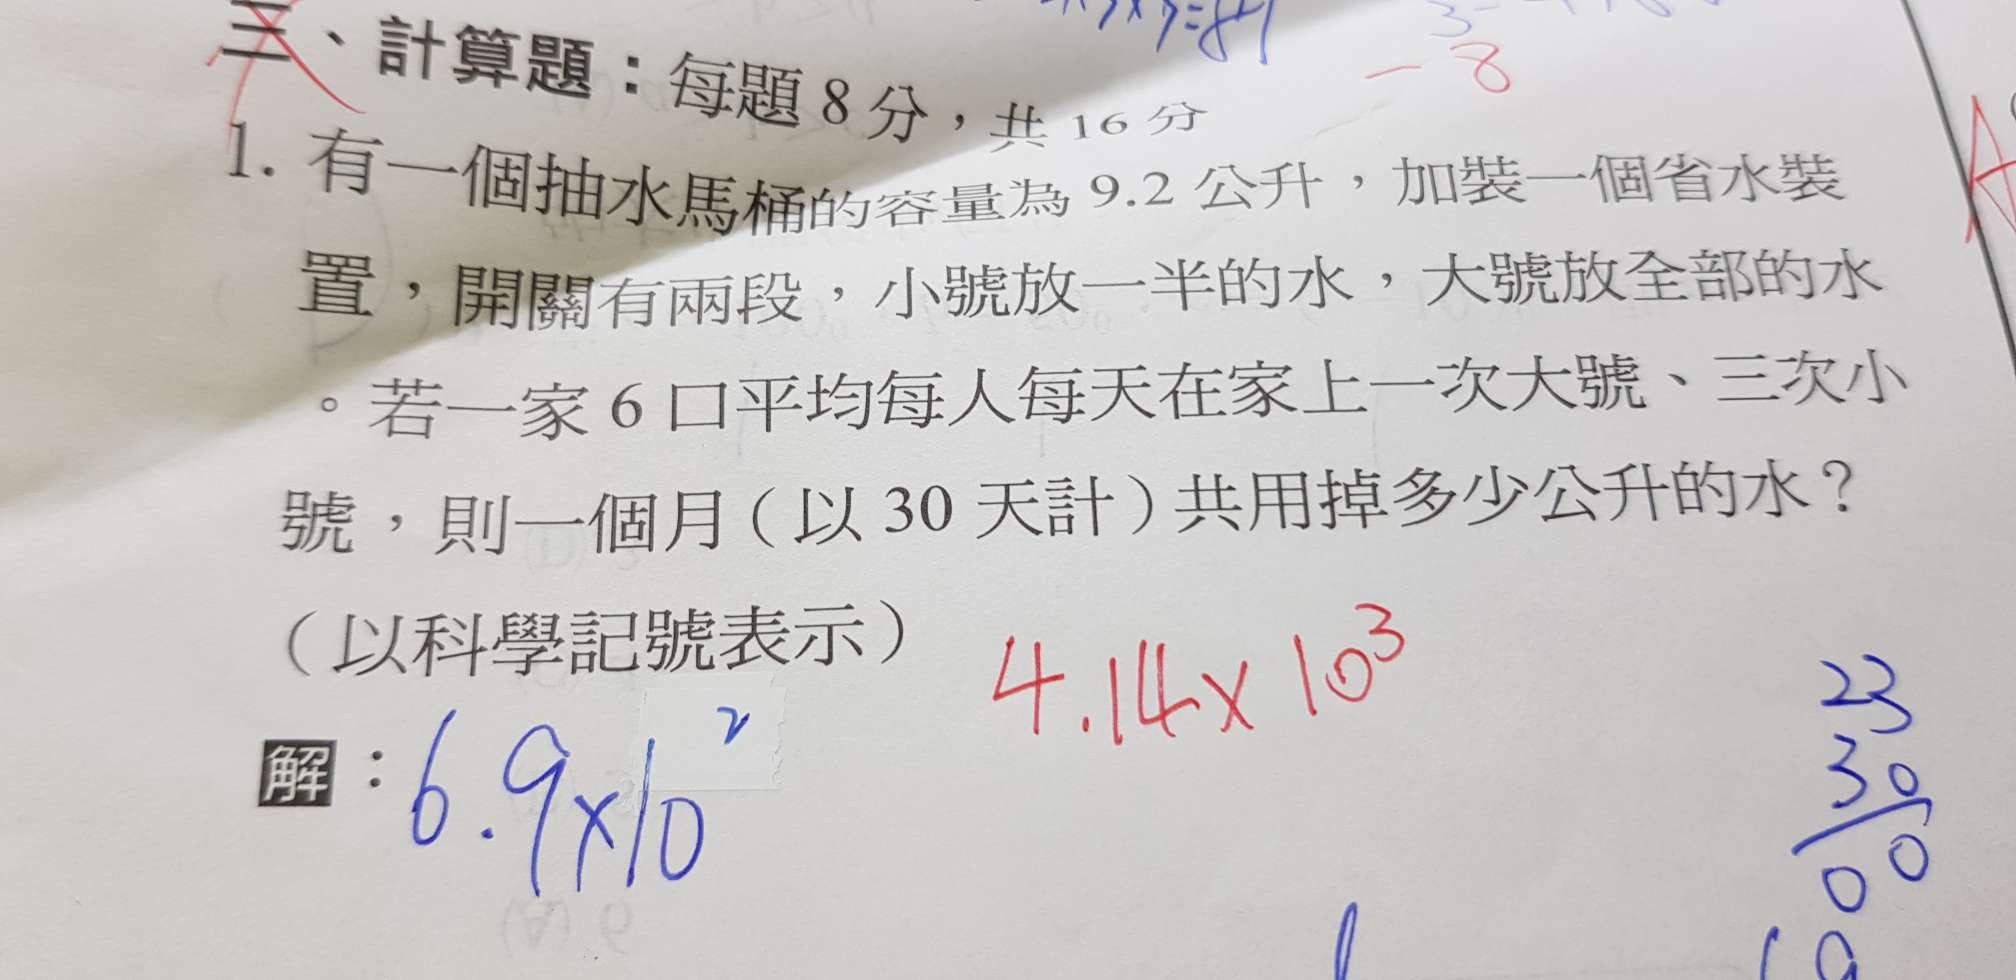 三、計算題：每題8分，共16分
-8
1. 有一個抽水馬桶的容量為9.2公升，加裝一個省水裝
置，開關有兩段，小號放一半的水，大號放全部的水
。若一家6口平均每人每天在家上一次大號、三次小
號，則一個月（以30天計）共用掉多少公升的水？
（以科學記號表示）
4.14×10³
解：6.9×10²
23
30
00
69